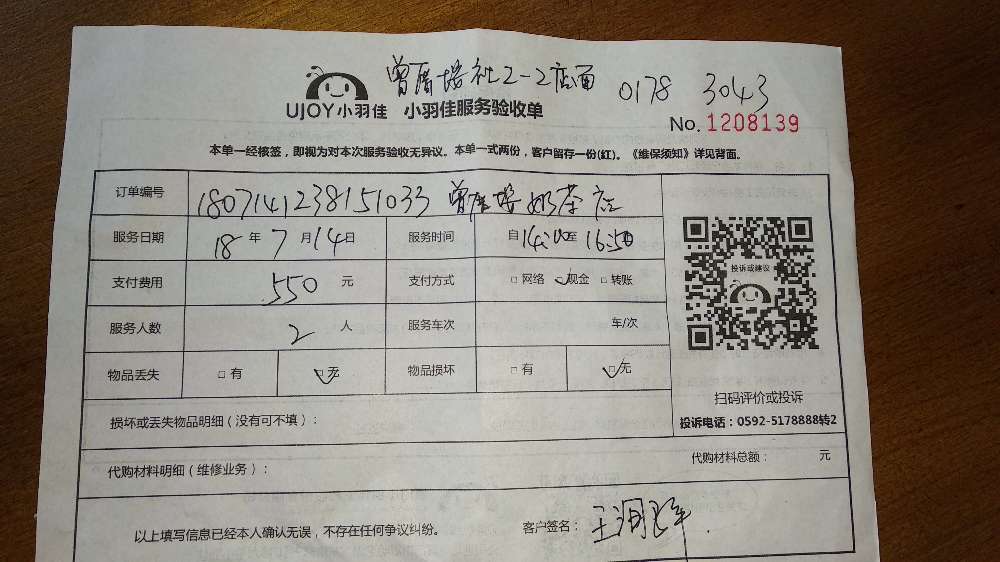 曾厝垵社2-2店面 0178 3043
UJOY小羽佳 小羽佳服务验收单
No. 1208139
本单一经核签，即视为对本次服务验收无异议。本单一式两份，客户留存一份(红)。《维保须知》详见背面。
订单编号 1807141238151033 曾厝垵奶茶店
服务日期 18年7月14日 服务时间 自14:00至16:50
支付费用 550元 支付方式 □网络 □现金 □转账
投诉或建议
服务人数 2人 服务车次 车/次
物品丢失 □有 □无 物品损坏 □有 □无
扫码评价或投诉
损坏或丢失物品明细（没有可不填）：
投诉电话：0592-5178888转2
代购材料明细（维修业务）： 代购材料总额： 元
以上填写信息已经本人确认无误，不存在任何争议纠纷。 客户签名：